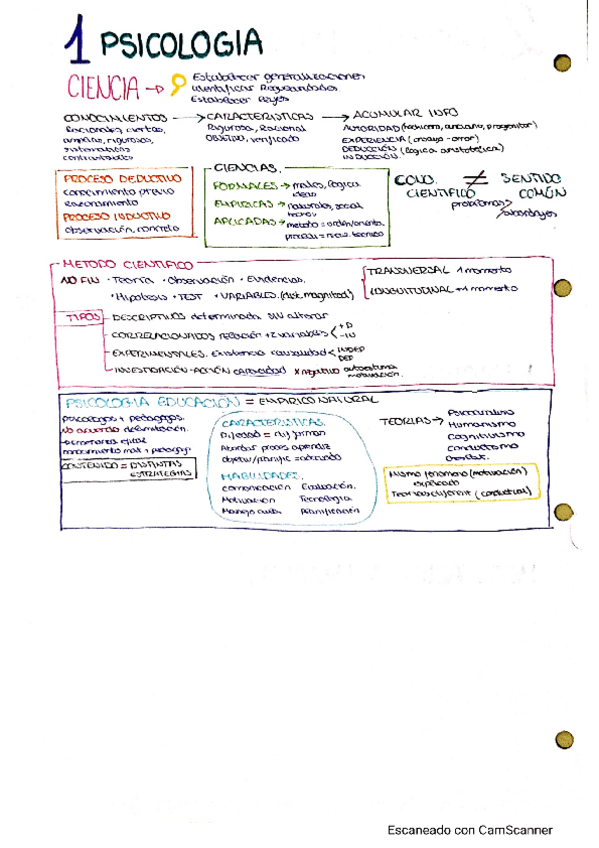 1 PSICOLOGIA
CIENCIA → Establecer generalizaciones
Identificar Regularidades
Establecer leyes
CONOCIMIENTOS → CARACTERISTICAS → ACUMULAR INFO
Racionales, ciertos,
amplios, rigurosos,
sistematicos
contrastables
Rigurosa, Racional
Objetivo, verificado
AUTORIDAD (hechicero, anciano, progenitor)
EXPERIENCIA (ensayo-error)
DEDUCCIÓN (logica aristotelica)
INDUCCIÓN.
PROCESO DEDUCTIVO
conocimiento previo
razonamiento
PROCESO INDUCTIVO
observación, concreto
CIENCIAS.
FORMALES → mates, logica
ideas
EMPIRICAS → naturales, social
APLICADAS → metodo =
CONO. ≠ SENTIDO
CIENTIFICO COMÚN
problemas
METODO CIENTIFICO
NO FIN · Teoría · Observación · Evidencias.
· Hipotesis · TEST · VARIABLES.
TRANSVERSAL 1 momento
LONGITUDINAL +1 momento
TIPOS
DESCRIPTIVOS determinada. SIN alterar
CORRELACIONADOS relación +2 variables < +D
-IN
EXPERIMENTALES. Existencia causalidad < INDEP
DEP
INVESTIGACIÓN-ACCIÓN capacidad x negativo autoestima
motivación.
PSICOLOGIA EDUCACIÓN = EMPIRICO NATURAL
psicologos + pedagogos.
NO acuerdo delimitación.
conocimiento mat + pedagog.
CONTENIDO = DISTINTAS
ESTRATEGIAS
CARACTERISTICAS.
Abordar proces aprendiz
HABILIDADES.
comunicación Evaluación.
Motivación Tecnologia
Manejo aula Planificación
TEORIAS → Psicoanalisis
Humanismo
Cognitivismo
Conductismo
Gestalt.
Mismo fenomeno (motivación)
explicado
Teorias diferent (conductual)
Escaneado con CamScanner